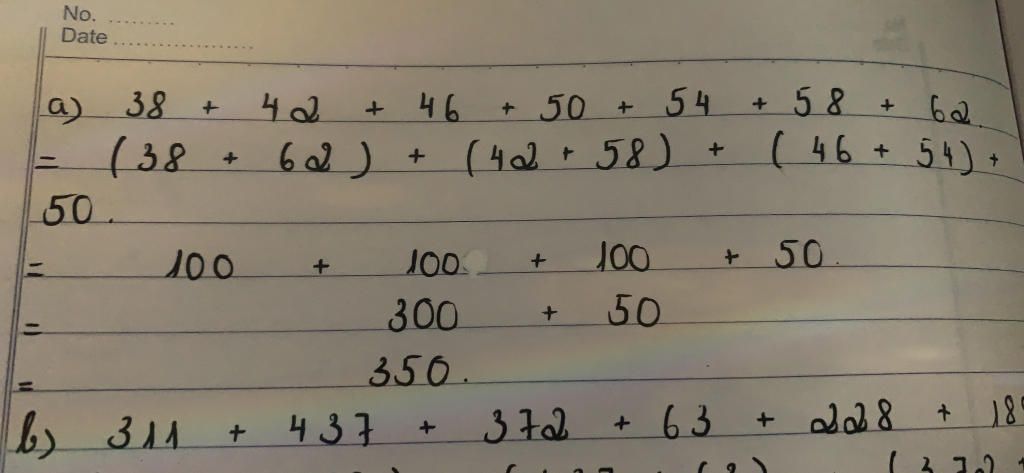 No. ..........
Date ....................
a) 38 + 42 + 46 + 50 + 54 + 58 + 62.
= (38 + 62) + (42 + 58) + (46 + 54) +
50.
= 100 + 100 + 100 + 50.
= 300 + 50
= 350.
b) 311 + 437 + 372 + 63 + 228 +